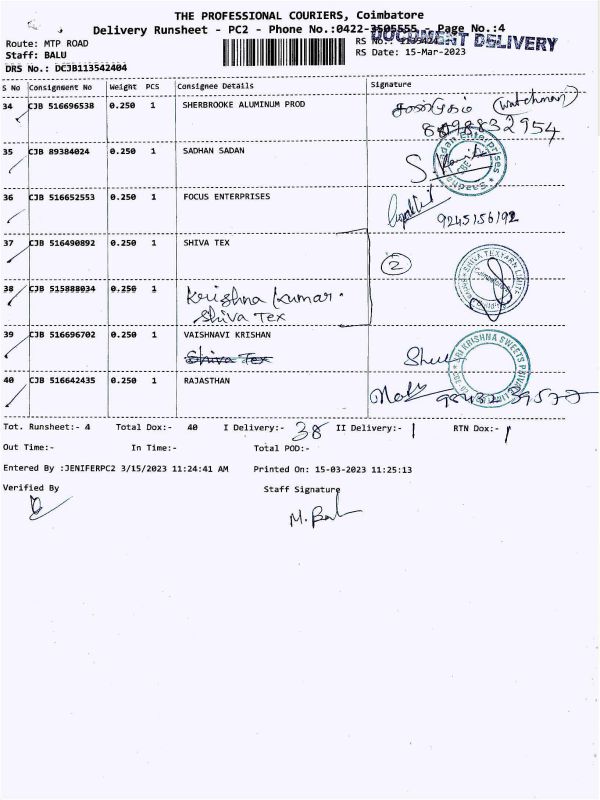 THE PROFESSIONAL COURIERS, Coimbatore
Delivery Runsheet - PC2 - Phone No.:0422-3505555 - Page No.:4
DOCUMENT DELIVERY
Route: MTP ROAD
RS No.:
Staff: BALU
RS Date: 15-Mar-2023
DRS No.: DCJB113542404
S No Consignment No Weight PCS Consignee Details Signature
34 CJB 516696538 0.250 1 SHERBROOKE ALUMINUM PROD (watchman)
35 CJB 89384024 0.250 1 SADHAN SADAN
36 CJB 516652553 0.250 1 FOCUS ENTERPRISES
9245156192
37 CJB 516490892 0.250 1 SHIVA TEX
2
38 CJB 515888034 0.250 1 Krishna Kumar.
Shiva Tex
39 CJB 516696702 0.250 1 VAISHNAVI KRISHAN
Shiva Tex
SRI KRISHNA SWEETS PRIVATE LIMITED
40 CJB 516642435 0.250 1 RAJASTHAN
Tot. Runsheet:- 4 Total Dox:- 40 I Delivery:- 38 II Delivery:- 1 RTN Dox:- 1
Out Time:- In Time:- Total POD:-
Entered By :JENIFERPC2 3/15/2023 11:24:41 AM Printed On: 15-03-2023 11:25:13
Verified By Staff Signature
M. Bal